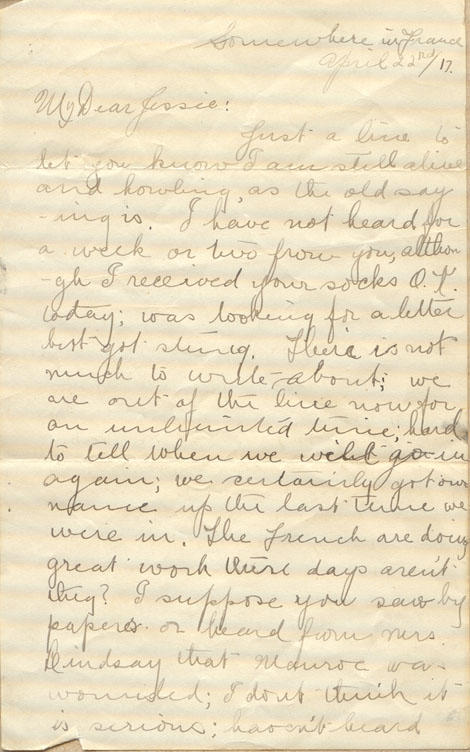 Somewhere in France
April 22nd/17.
My Dear Jessie:
Just a line to
let you know I am still alive
and howling, as the old say
-ing is. I have not heard for
a week or two from you, althou
-gh I received your socks O.K.
today; was looking for a letter
but got stung. There is not
much to write about; we
are out of the line now for
an unlimited time; hard
to tell when we will go in
again; we certainly got our
name up the last time we
were in. The French are doing
great work these days aren't
they? I suppose you saw by
papers or heard from Mrs.
Lindsay that Monroe was
wounded; I dont think it
is serious; haven't heard